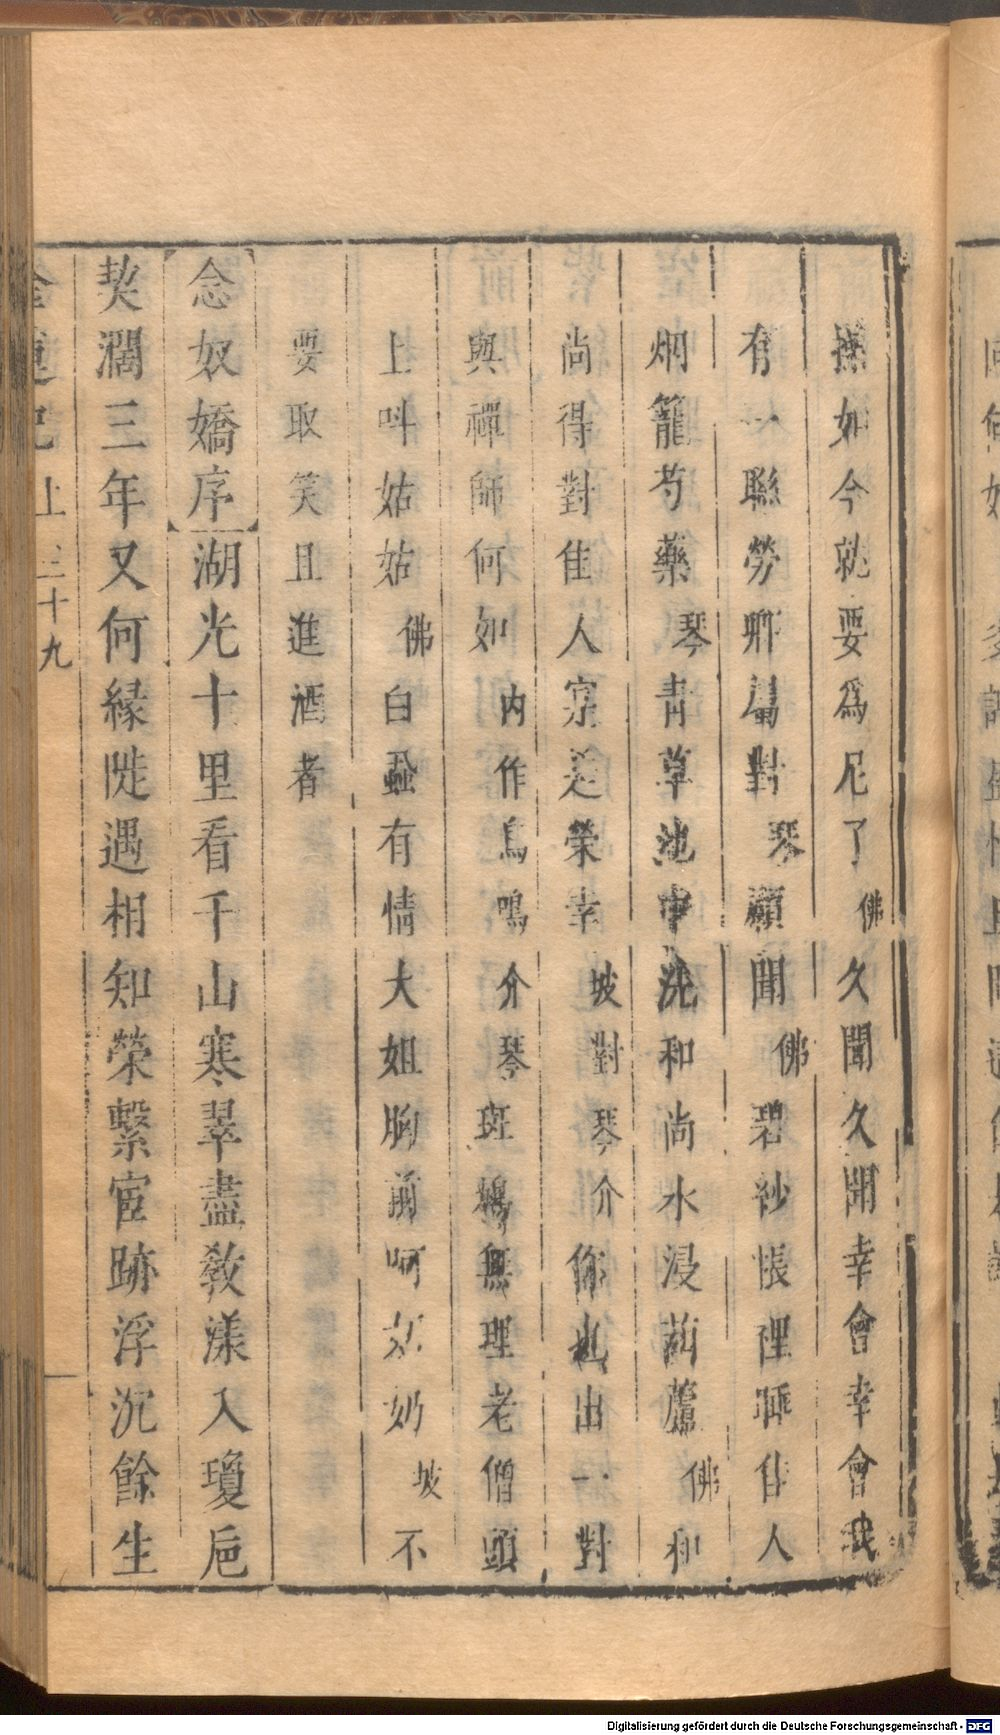 操如今就要爲尼了佛久聞久聞幸會幸會我
有一聯勞卿屬對琴願聞佛碧紗帳裡睡佳人
烟籠芍藥琴青草池中洗和尚水浸葫蘆佛和
尚得對佳人宗是榮幸坡對琴介你也出一對
與禪師何如内作鳥鳴介琴斑鳩無理老僧頭
上叫姑姑佛白蝨有情大姐胸前呵奶奶坡不
要取笑且進酒者
念奴嬌序湖光十里看千山寒翠盡教漾入瓊巵
契濶三年又何緣陡遇相知榮繫宦跡浮沉餘生
上 三十九
Digitalisierung gefördert durch die Deutsche Forschungsgemeinschaft - DFG